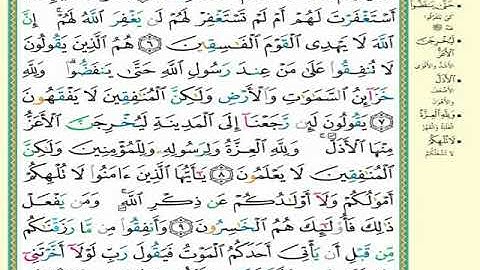 أَسْتَغْفَرْتَ لَهُمْ أَمْ لَمْ تَسْتَغْفِرْ لَهُمْ لَن يَغْفِرَ ٱللَّهُ لَهُمْ ۚ إِنَّ
ٱللَّهَ لَا يَهْدِى ٱلْقَوْمَ ٱلْفَـٰسِقِينَ ٦ هُمُ ٱلَّذِينَ يَقُولُونَ
لَا تُنفِقُوا۟ عَلَىٰ مَنْ عِندَ رَسُولِ ٱللَّهِ حَتَّىٰ يَنفَضُّوا۟ ۗ وَلِلَّهِ
خَزَآئِنُ ٱلسَّمَـٰوَٰتِ وَٱلْأَرْضِ وَلَـٰكِنَّ ٱلْمُنَـٰفِقِينَ لَا يَفْقَهُونَ
٧ يَقُولُونَ لَئِن رَّجَعْنَآ إِلَى ٱلْمَدِينَةِ لَيُخْرِجَنَّ ٱلْأَعَزُّ
مِنْهَا ٱلْأَذَلَّ ۚ وَلِلَّهِ ٱلْعِزَّةُ وَلِرَسُولِهِۦ وَلِلْمُؤْمِنِينَ وَلَـٰكِنَّ
ٱلْمُنَـٰفِقِينَ لَا يَعْلَمُونَ ٨ يَـٰٓأَيُّهَا ٱلَّذِينَ ءَامَنُوا۟ لَا تُلْهِكُمْ
أَمْوَٰلُكُمْ وَلَآ أَوْلَـٰدُكُمْ عَن ذِكْرِ ٱللَّهِ ۚ وَمَن يَفْعَلْ
ذَٰلِكَ فَأُو۟لَـٰٓئِكَ هُمُ ٱلْخَـٰسِرُونَ ٩ وَأَنفِقُوا۟ مِن مَّا رَزَقْنَـٰكُم
مِّن قَبْلِ أَن يَأْتِىَ أَحَدَكُمُ ٱلْمَوْتُ فَيَقُولَ رَبِّ لَوْلَآ أَخَّرْتَنِىٓ
حَتَّىٰ يَنفَضُّوا
لَيُخْرِجَنَّ
الْأَعَزُّ
الْأَذَلَّ
وَلِلَّهِ الْعِزَّةُ
لَا تُلْهِكُمْ